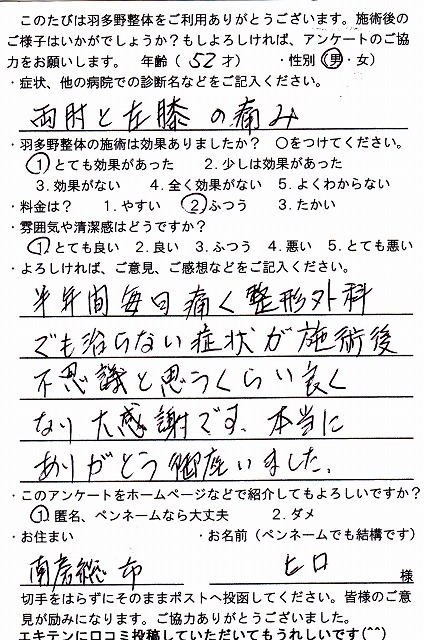 このたびは羽多野整体をご利用ありがとうございます。施術後の
ご様子はいかがでしょうか？もしよろしければ、アンケートのご協
力をお願いします。　年齢（ 52 才）　・性別（男・女）
・症状、他の病院での診断名などをご記入ください。
両肘と左膝の痛み
・羽多野整体の施術は効果ありましたか？　○をつけてください。
1 とても効果があった　2. 少しは効果があった
3. 効果がない　4. 全く効果がない　5. よくわからない
・料金は？　1. やすい　2 ふつう　3. たかい
・雰囲気や清潔感はどうですか？
1. とても良い　2. 良い　3. ふつう　4. 悪い　5. とても悪い
・よろしければ、ご意見、ご感想などをご記入ください。
半年間毎日痛く整形外科
でも治らない症状が施術後
不思議と思うくらい良く
なり大感謝です、本当に
ありがとう御座いました。
・このアンケートをホームページなどで紹介してもよろしいですか？
1. 匿名、ペンネームなら大丈夫　2. ダメ
・お住まい　・お名前（ペンネームでも結構です）
南房総市　ヒロ　様
切手をはらずにそのままポストへ投函してください。皆様のご意
見が励みになります。ご協力ありがとうございました。
エキテンに口コミ投稿していただいてもうれしいです(^^)